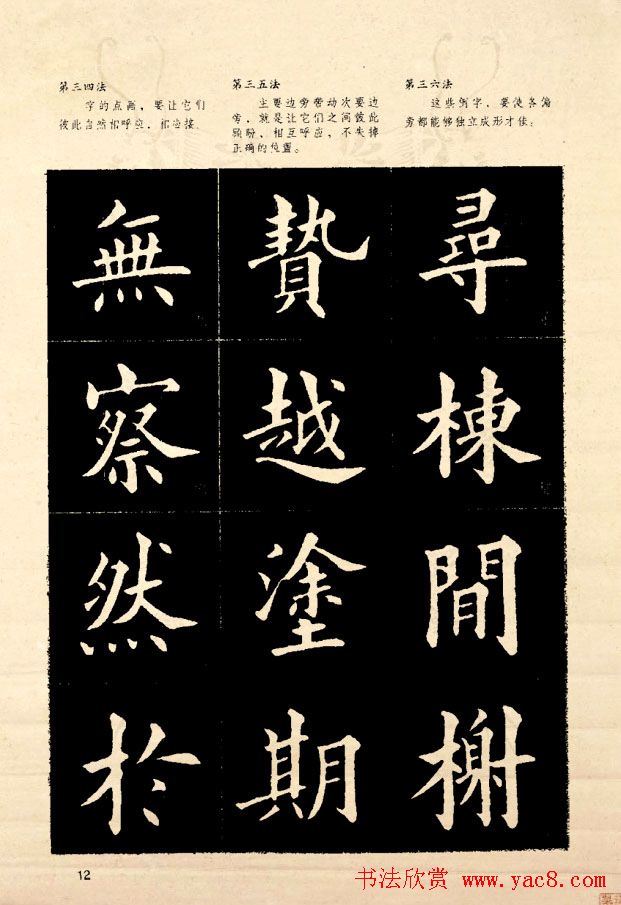 第三四法
字的点画，要让它们
彼此自然相呼应，相迎接。
第三五法
主要边旁带动次要边
旁，就是让它们之间彼此
顾盼、相互呼应，不失掉
正确的位置。
第三六法
这些例字，要使各偏
旁都能够独立成形才佳。
無 贄 尋
察 越 棟
然 塗 間
於 期 榭
12
书法欣赏 www.yac8.com